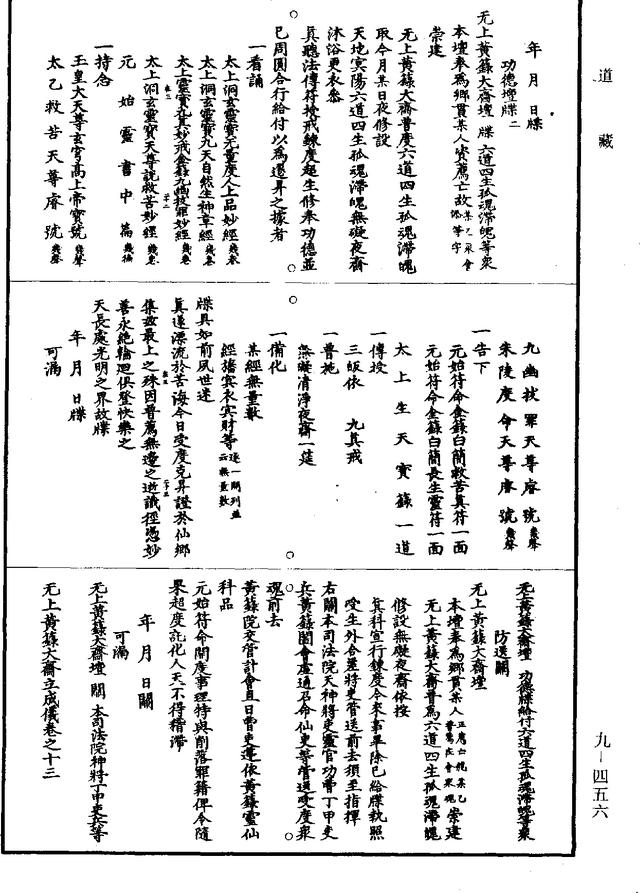 道藏
年　月　日牒
功德壇牒二
无上黃籙大齋壇　牒　六道四生孤魂滯魄等衆
本壇奉爲鄉貫某人資薦亡故某乙衆會添等字
崇建
无上黃籙大齋普度六道四生孤魂滯魄
取今月某日夜修設
天地冥陽六道四生孤魂滯魄無礙夜齋
沐浴更衣參
眞聽法傳符授戒鍊度超生修奉功德並
已周圓合行給付以爲還昇之據者
一看誦
太上洞玄靈寶无量度人上品妙經幾卷
太上洞玄靈寶九天自然生神章經幾卷
太上靈寶九眞妙戒金籙九幽拔罪妙經幾卷
太上洞玄靈寶天尊說救苦妙經幾卷
元始靈書中篇幾徧
一持念
玉皇大天尊玄穹高上帝寶號幾聲
太乙救苦天尊睿號幾聲
九幽拔罪天尊睿號幾聲
朱陵度命天尊睿號幾聲
一告下
元始符命金籙白簡救苦眞符一面
元始符命金籙白簡長生靈符一面
太上生天寶籙一道
一傳授
三皈依　九眞戒
一普施
無礙清淨夜齋一筵
一備化
某經無量數
經旛冥衣冥財等逐一開列並云無量數
牒具如前夙世迷
眞遂漂流於苦海今日受度克昇證於仙鄉
集玆最上之殊因普薦無邊之逝識挺憑妙
善永絕輪迴俱登快樂之
天長處光明之界故牒
年　月　日牒
可漏
无上黃籙大齋壇　功德牒給付六道四生孤魂滯魄等衆
防送關
无上黃籙大齋壇
本壇奉爲鄉貫某人正薦亡魂某乙普薦衆會衆魂崇建
无上黃籙大齋普爲六道四生孤魂滯魄
修設無礙夜齋依按
眞科宣行鍊度今來事畢除已給牒執照
受生外合差將吏管送前去須至指揮
右關本司法院天神將吏靈官功曹丁甲吏
兵黃籙閤會虛通召命仙吏等管送受度衆
魂前去
黃籙院交管計會直日曹吏運依黃籙靈仙
科品
元始符命開度事理特與削落罪籍俾令隨
果超度託化人天不得稽滯
年　月　日關
可漏
无上黃籙大齋壇　關　本司法院神將丁甲吏兵等
无上黃籙大齋立成儀卷之十三
九—四五六